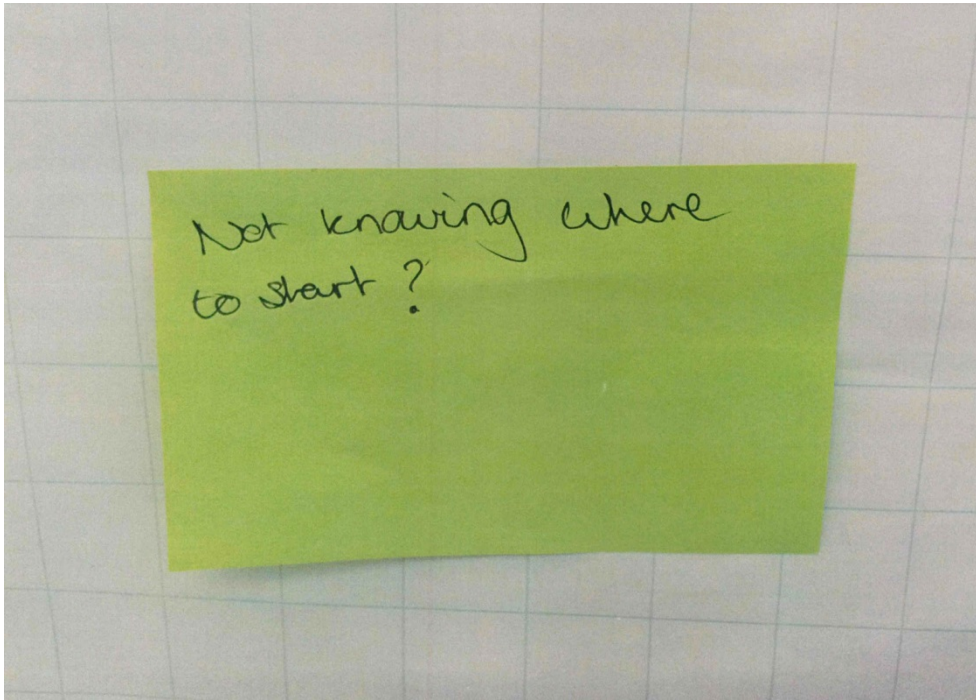 Not knowing where
to start?